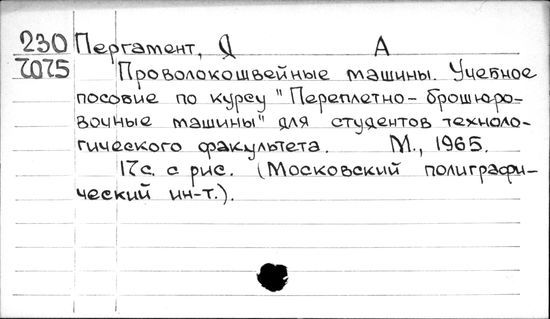 230 Пергамент, Я А
7075 Проволокошвейные машины. Учебное
пособие по курсу "Переплетно-брошюро-
вочные машины" для студентов техноло-
гического факультета. М., 1965.
17с. с рис. (Московский полиграфи-
ческий ин-т.).